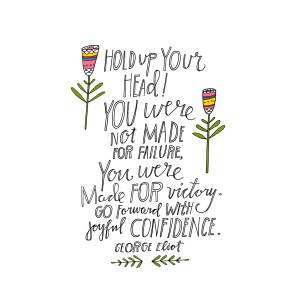 HOLD UP YOUR
HEAD!
YOU were
NOT MADE
FOR FAILURE,
You were
Made FOR victory.
GO Forward WITH
joyful CONFIDENCE.
GEORGE Eliot